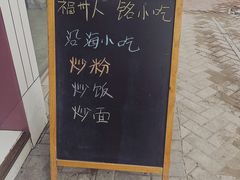 福州人 铭小吃
沿海小吃
炒粉
炒饭
炒面